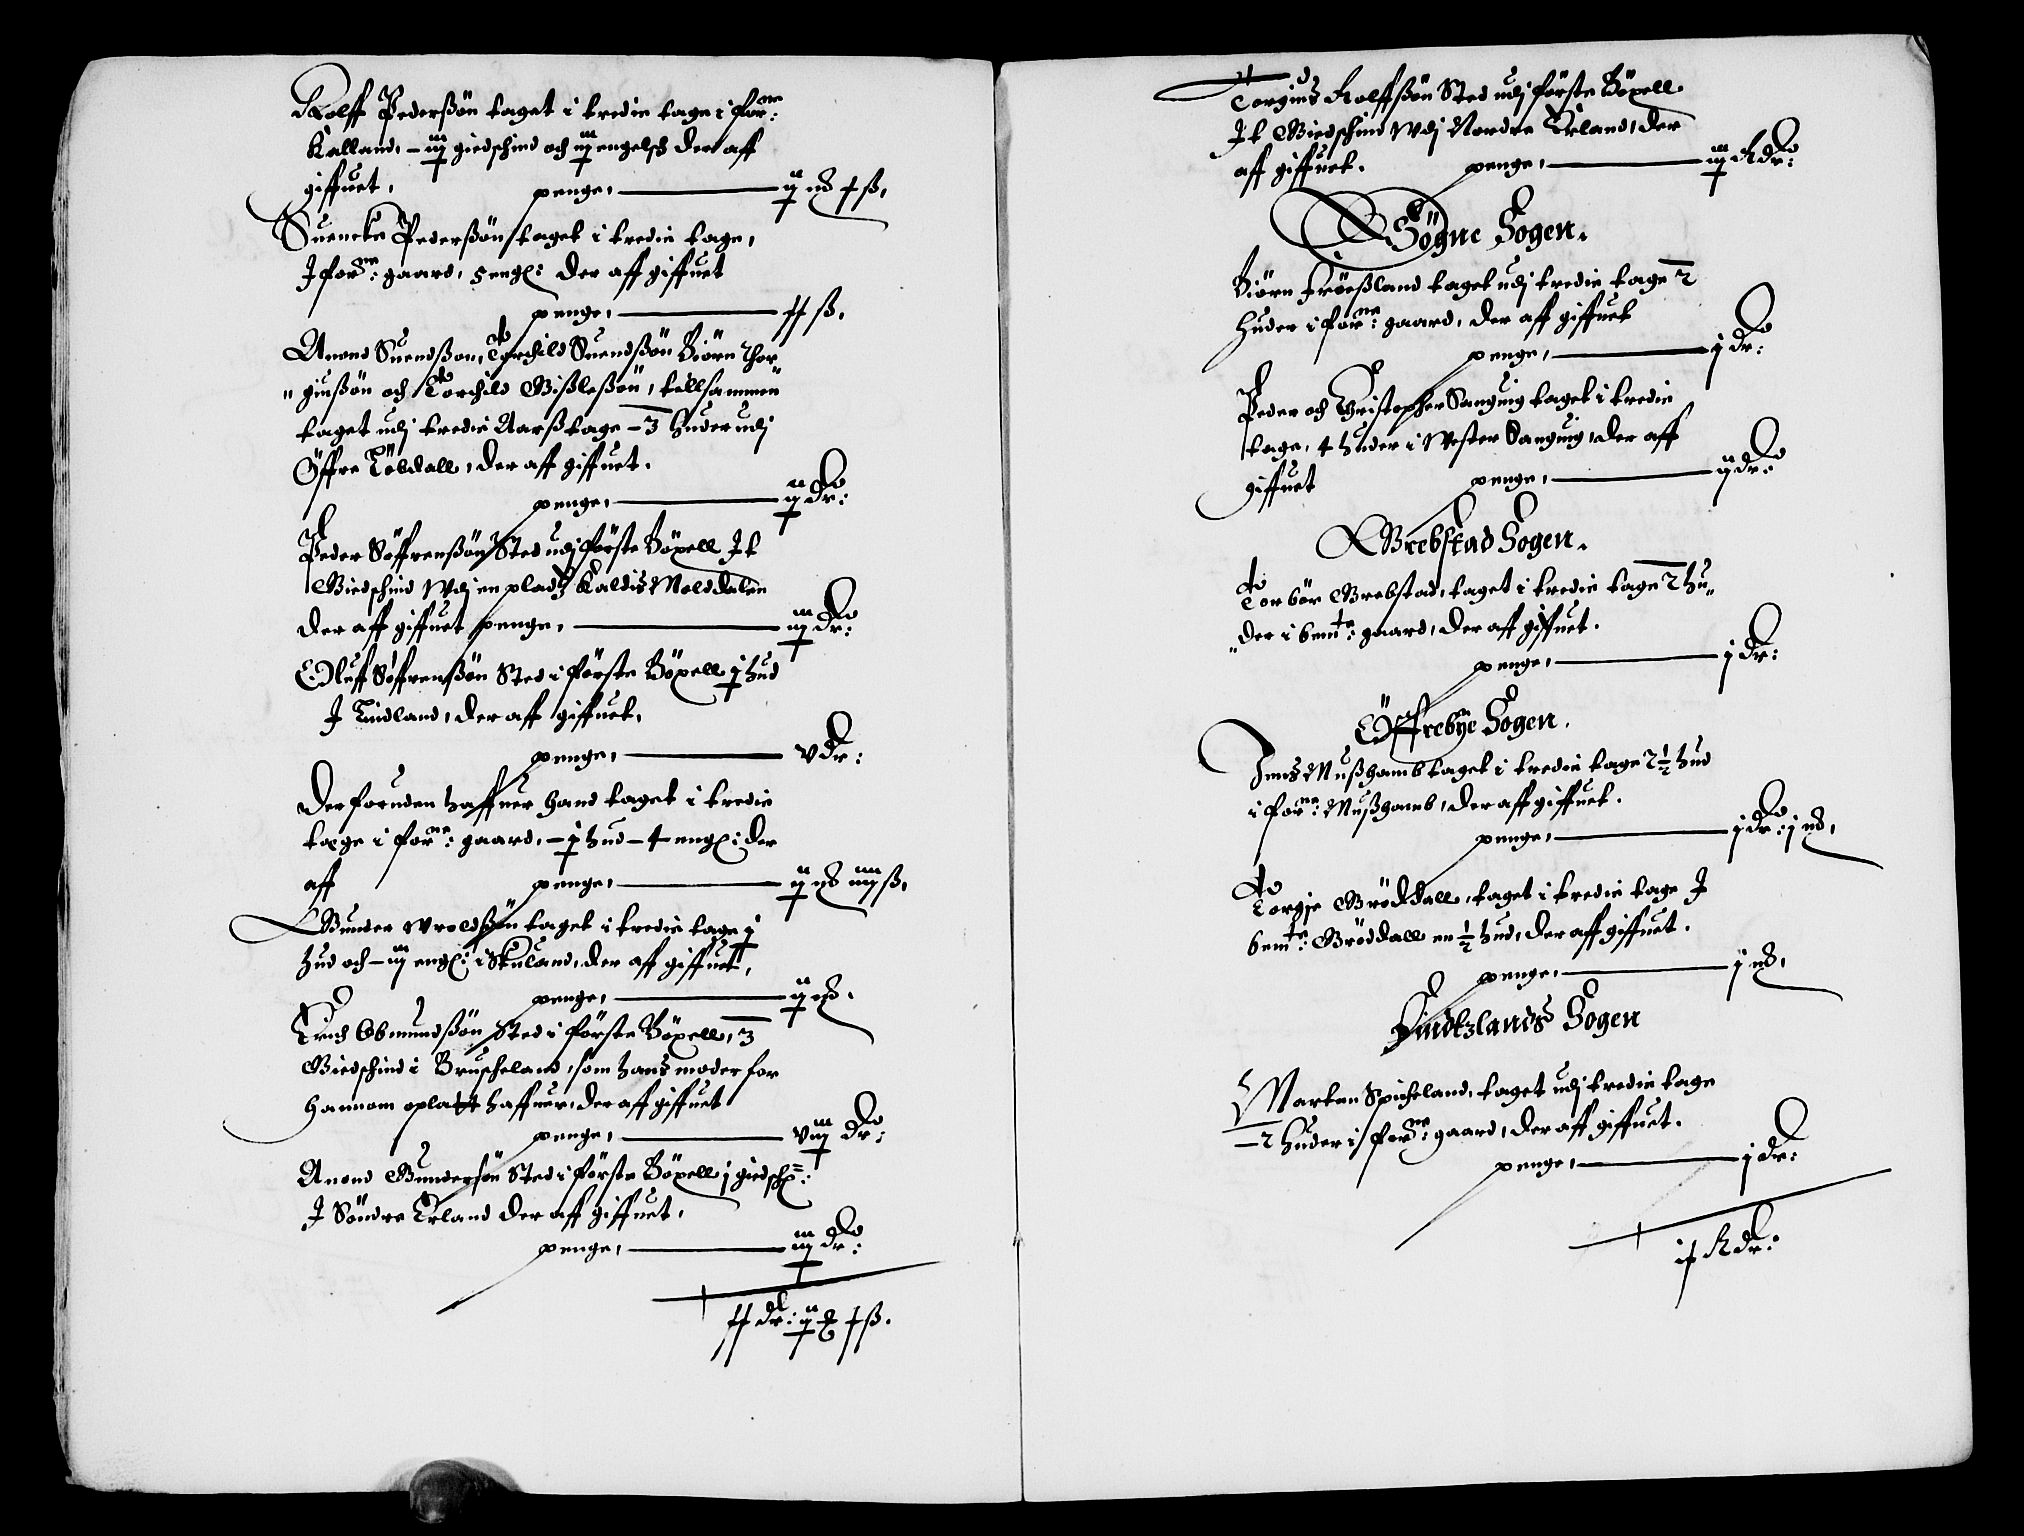 Rolff Pederßøn taget i tredie tage i forne:
Kalland, – iij giedschind och iij engelsch der aff
giffuet, penge, ij
Suencke Pederßøn taget i tredie tage,
J forne: gaard, 5 engl: der aff giffuet
penge, ß.
Anond Suendßøn, Torchild Suendßøn Biørn Thor
giußøn och Torchild Gißleßøn, tellsammen
taget udj tredie Aarß tage – 3 huder udj
Öffre Töbdall, der aff giffuet.
penge, ij Dr:
Peder Söffrenßøn Sted udj förste Böxell It
Giedschind Wdj en pladtz Kaldis Molddalen
der aff giffuet penge, iij Dr:
Olluff Söffrenßøn Sted i förste Böxell j hud
J Tindland, der aff giffuet,
penge, v Dr:
Der foruden haffuer hand taget i tredie
tage i forne: gaard, – j hud – 4 engl: der
aff penge, ij iiij ß,
Gunder Wroldßøn taget i tredie tage j
hud och – iij engl: i Skuland, der aff giffuet,
penge, ij
Truls Obmundßøn Sted i förste Böxell, 3
Giedschind i Bruscheland, som hans moder for
hannom oplatt haffuer, der aff giffuet
penge, viij Dr:
Anond Gundersøn Sted i förste Böxell j giedsch:
J Söndre Erland der aff giffuet,
penge, iij Dr:
Dr: ij ß.
Torgius Rolffßøn Sted udj förste Böxell
It Giedschind Wdj Nordre Erland, der
aff giffuet. penge, iij Rdr:
Sögne Sogen.
Biörn Fröeßland taget udj tredie tage 2
huder i forne: gaard, der aff giffuet
penge, j Dr:
Peder och Christopher Sanguig taget i tredie
tage, 4 huder i Wester Sanguig, der aff
giffuet penge, ij dr:
Grebstad Sogen.
Torbör Grebstad, taget i tredie tage 2 hu„
„der i bemte: gaard, der aff giffuet.
penge, j Dr:
Öffrebye Sogen.
Jens Mußhamb taget i tredie tage 2 ½ hud
i forne: Mußhamb, der aff giffuet.
penge, j Dr: j
Torgje Gröddall, taget i tredie tage J
bemte: Gröddall en ½ hud, der aff giffuet.
penge, j
Findtzlands Sogen
Marten Spicheland, taget udj tredie tage
– 2 huder i forne: gaard, der aff giffuet.
penge, j Dr:
Rdr: